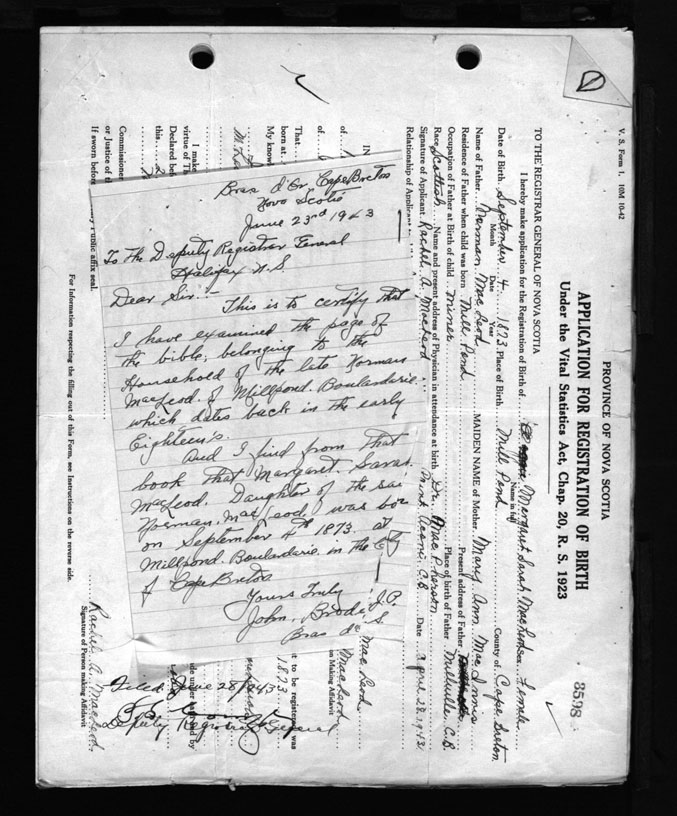 V. S. Form 1. 10M 10-42
PROVINCE OF NOVA SCOTIA
APPLICATION FOR REGISTRATION OF BIRTH
Under the Vital Statistics Act, Chap. 20, R. S. 1923
8598
TO THE REGISTRAR GENERAL OF NOVA SCOTIA
I hereby make application for the Registration of Birth of Margaret Sarah Female
Name in full
Date of Birth September 4 1873 Place of Birth Mill Pond County of Cape Breton
Month Date Year
Name of Father Norman Mac Leod MAIDEN NAME of Mother Mary Ann Mac Innis
Residence of Father when child was born Mill Pond Present address of Father
Occupation of Father at Birth of child miner Place of birth of Father Millville, C.B.
Race Scottish Name and present address of Physician in attendance at birth Dr. Mac Pherson
Signature of Applicant Rachel A. MacLeod C.B. Date April 28, 1943
Relationship of Applicant
IN
of
of
That
born at
My know
I make
virtue of Th
Declared be
this
Commissione
or Justice of th
If sworn before
ary Public affix seal.
Mac Leod
MacLeod
on Making Affidavit
t to be registered was
1873
de under
Rachel A. MacLeod.
Signature of Person making Affidavit
For Information respecting the filling out of this Form, see Instructions on the reverse side.
Bras d'Or, Cape Breton
Nova Scotia
June 23rd 1943
To The Deputy Registrar General
Halifax N.S.
Dear Sir:-
This is to certify that
I have examined the page of
the bible, belonging to the
Household of the late Norman
MacLeod, of Millpond. Boularderie.
which dates back in the early
Eighteen's.
And I find from that
book that Margaret. Sarah.
MacLeod. Daughter of the sai
Norman. MacLeod, was bor
on September 4th 1873. at
Millpond Boularderie. in the
of Cape Breton
Yours Truly
John. J.P.
Bras d'
Filed June 28/1943
Deputy Registrar General